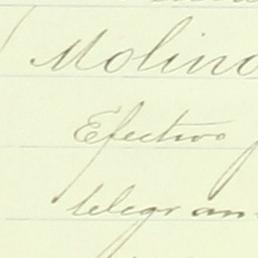 Molino
Efectivo
telegram